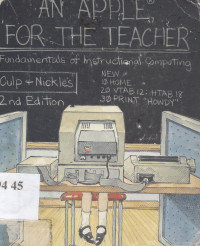 AN APPLE®
FOR THE TEACHER
Fundamentals of Instructional Computing
Culp & Nickles
2nd Edition
NEW
10 HOME
20 VTAB 12: HTAB 18
30 PRINT "HOWDY"
94 45